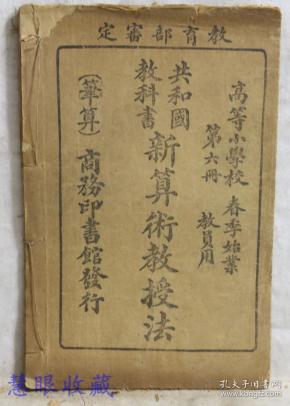 教育部審定
高等小學校 春季始業
第六冊 教員用
共和國
教科書
新算術教授法
(筆算)
商務印書館發行
慧眼收藏
孔夫子旧书网